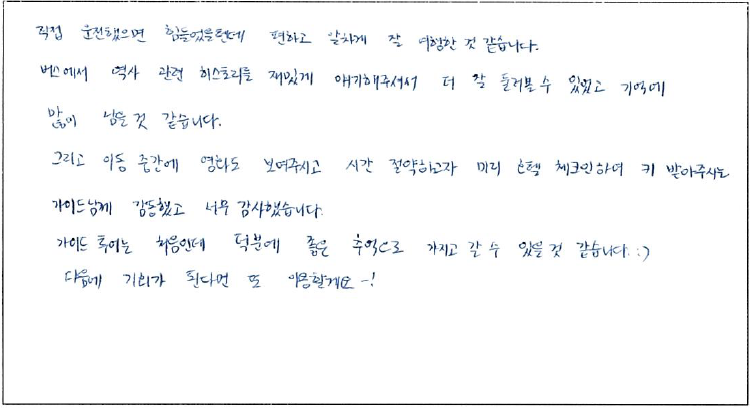 직접 운전했으면 힘들었을텐데 편하고 알차게 잘 여행한 것 같습니다.
버스에서 역사 관련 히스토리를 재밌게 얘기해주셔서 더 잘 둘러볼 수 있었고 기억에
많이 남을 것 같습니다.
그리고 이동 중간에 영화도 보여주시고 시간 절약하고자 미리 호텔 체크인하여 키 받아주시는
가이드님께 감동했고 너무 감사했습니다.
가이드 투어는 처음인데 덕분에 좋은 추억으로 가지고 갈 수 있을 것 같습니다. :)
다음에 기회가 된다면 또 이용할게요~!